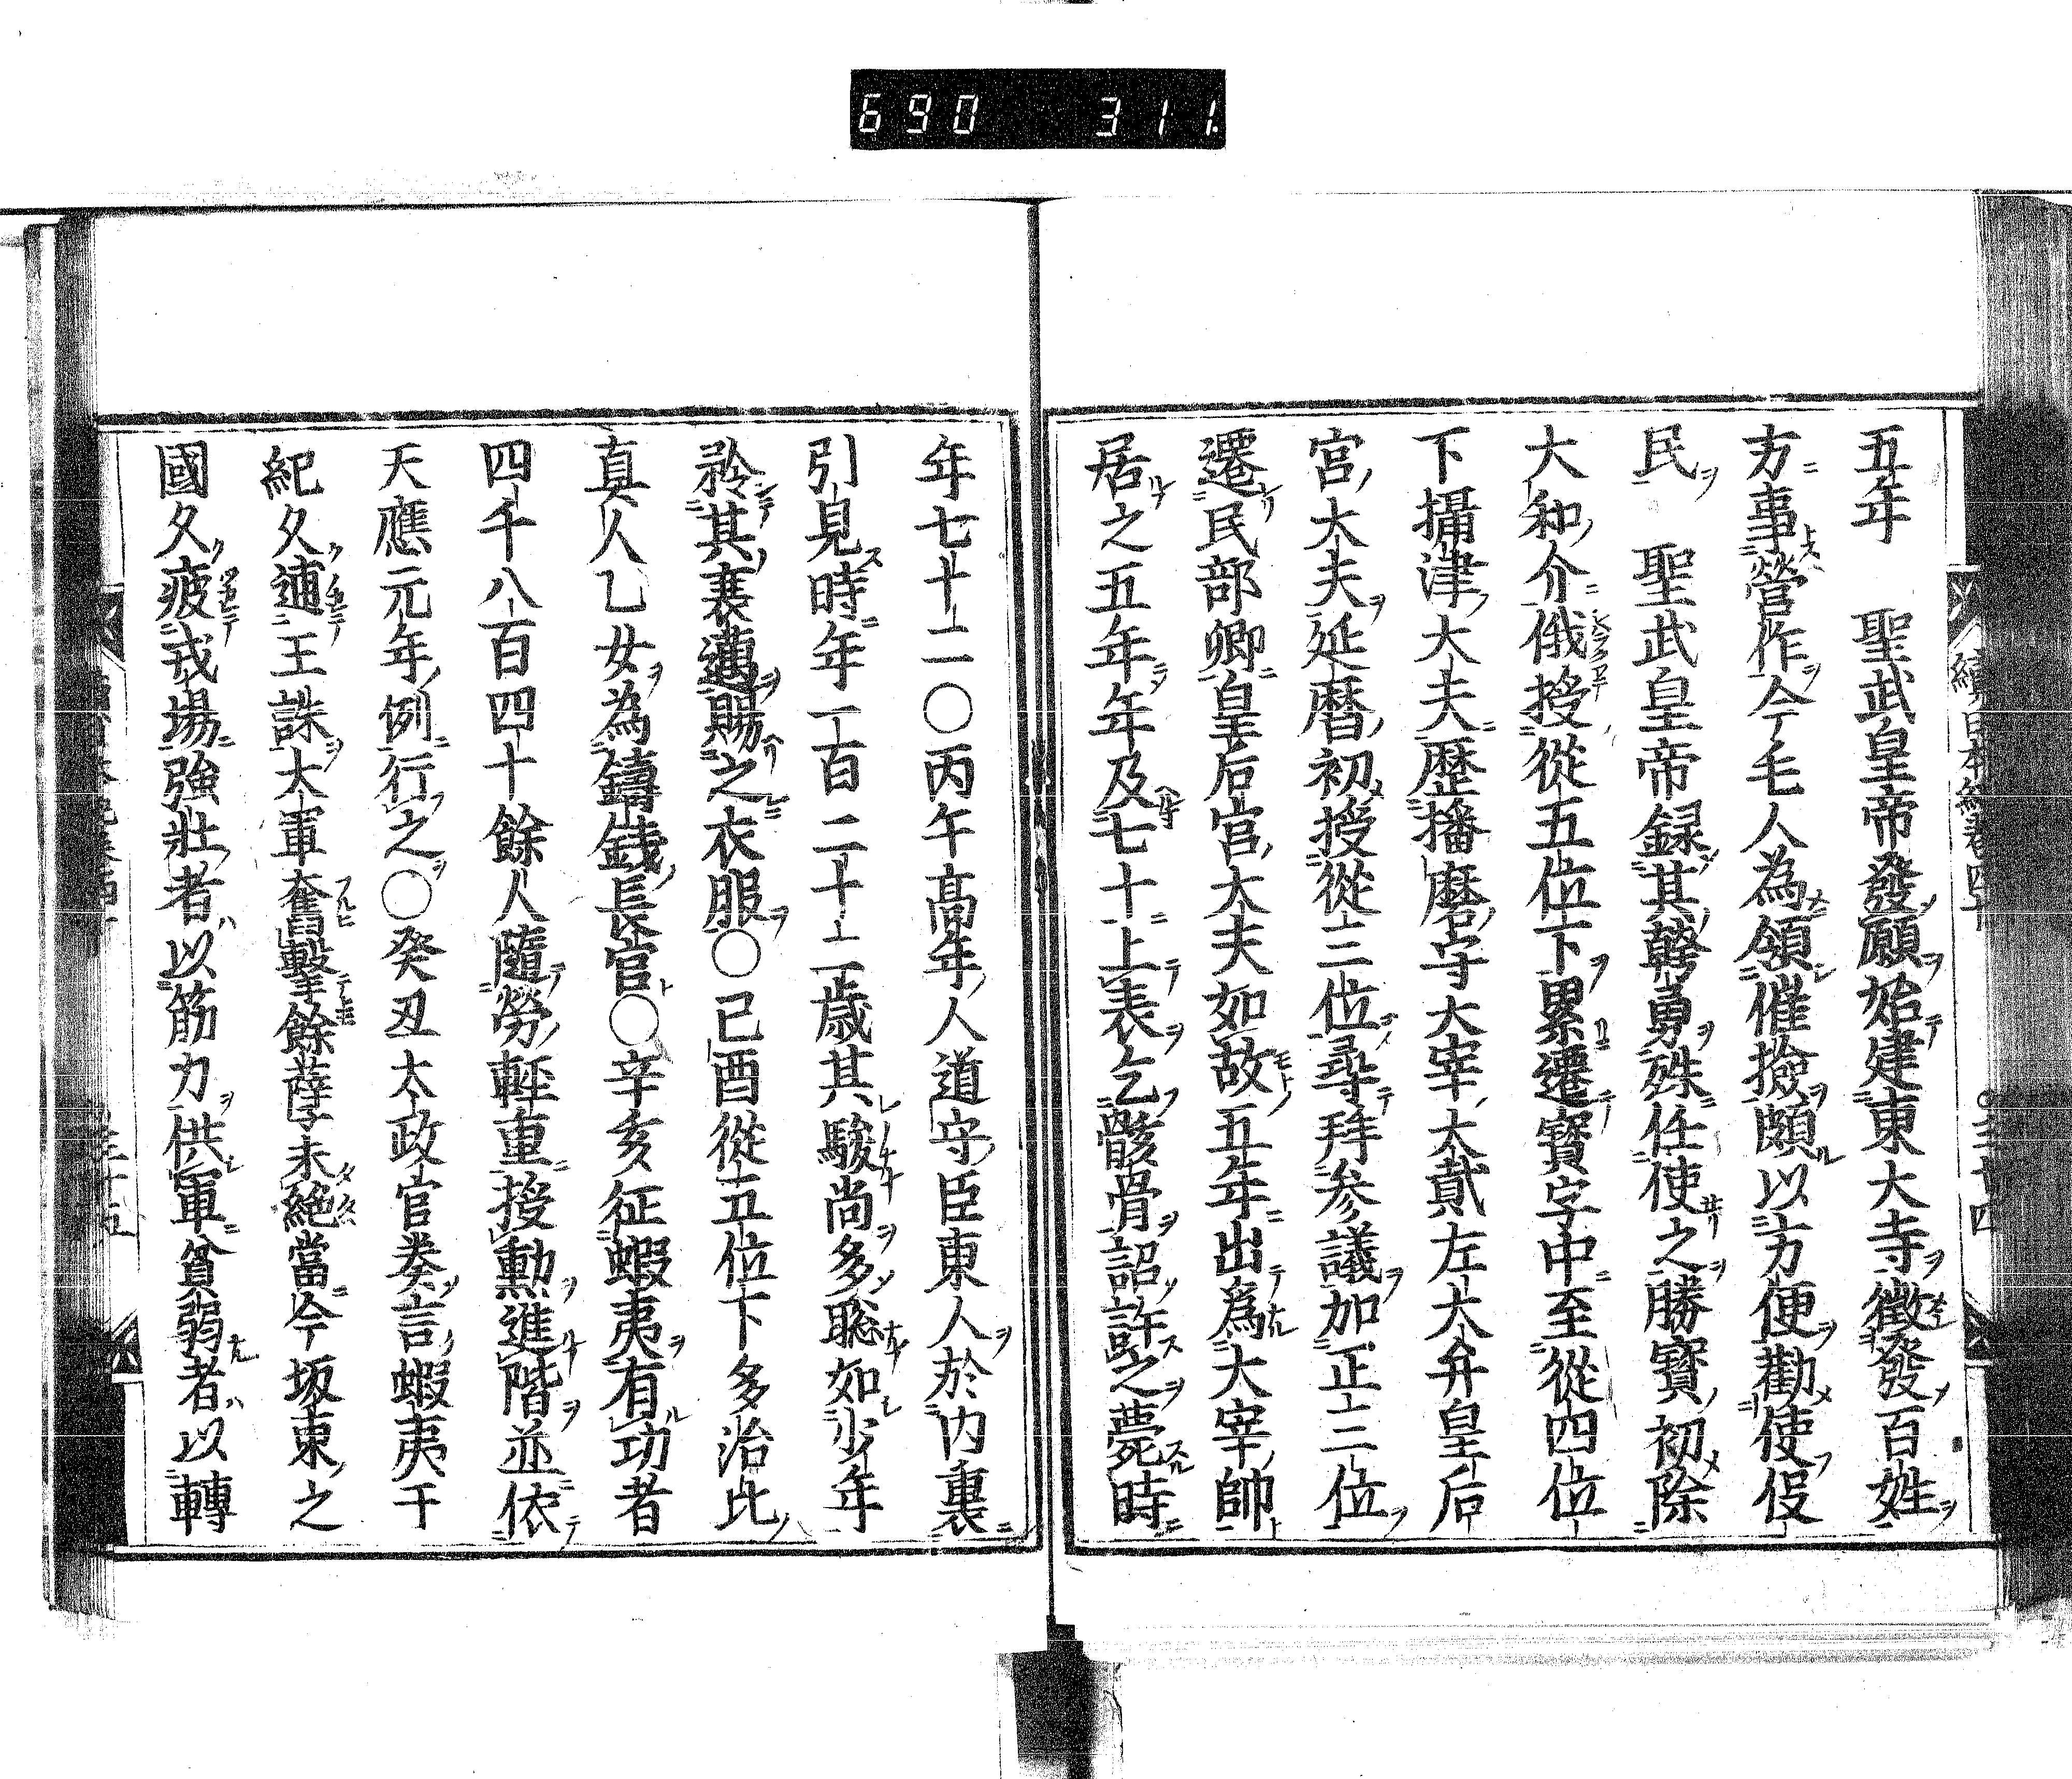 690 311.
五年　聖武皇帝發願始建東大寺徵發百姓
方事營作今毛人為領催撿頗以方便勸使役
民　聖武皇帝録其幹勇殊任使之勝寶初除
大和介俄授從五位下累遷寶字中至從四位
下攝津大夫歷播磨守大宰大貳左大弁皇后
宮大夫延曆初授從三位尋拜參議加正三位
遷民部卿皇后宮大夫如故五年出爲大宰帥
居之五年年及七十上表乞骸骨詔許之薨時
年七十二〇丙午高年人道守臣東人於内裏
引見時年一百二十一歳其駿尚多聡如少年
矜其衰邁賜之衣服〇己酉從五位下多治比
真人乙女為鑄錢長官〇辛亥征蝦夷有功者
四千八百四十餘人隨勞輕重授勳進階並依
天應元年例行之〇癸丑太政官奏言蝦夷干
紀久逋王誅大軍奮擊餘孽未絶當今坂東之
國久疲戎場強壯者以筋力供軍貧弱者以轉